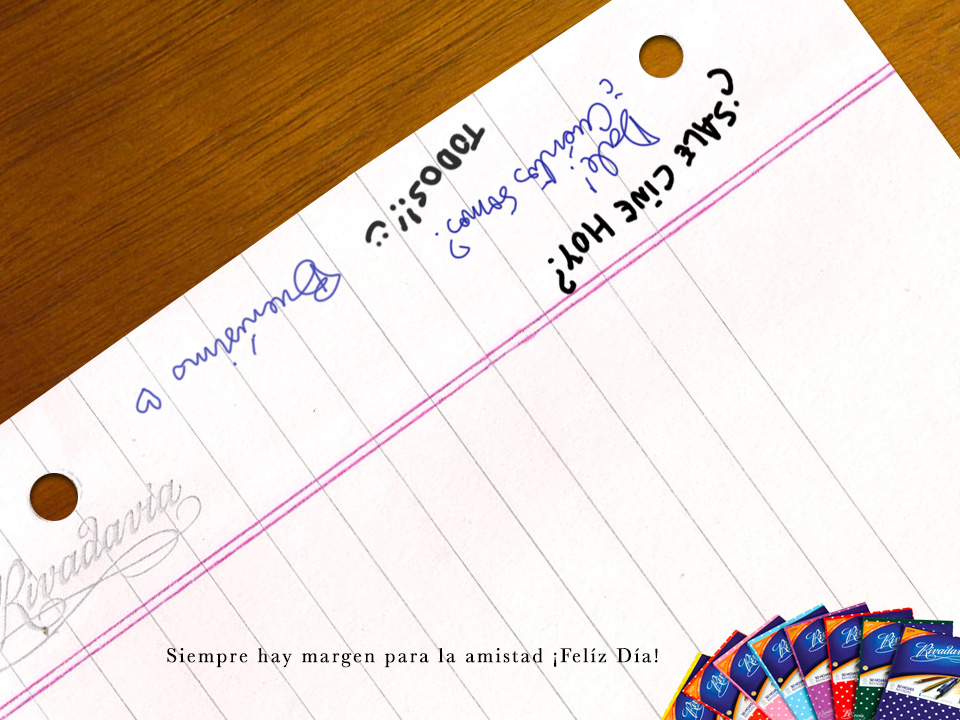 ¿SALE CiNE HOY?
Dale!
¿Cuántos somos?
TODOS!! :)
Buenísimo
Rivadavia
Siempre hay margen para la amistad ¡Felíz Día!
Rivadavia